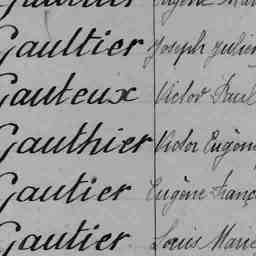 Gaultier Joseph Julien
Gauteux Victor Paul
Gauthier Victor Eugène
Gautier Eugène Franç
Gautier Louis Marie